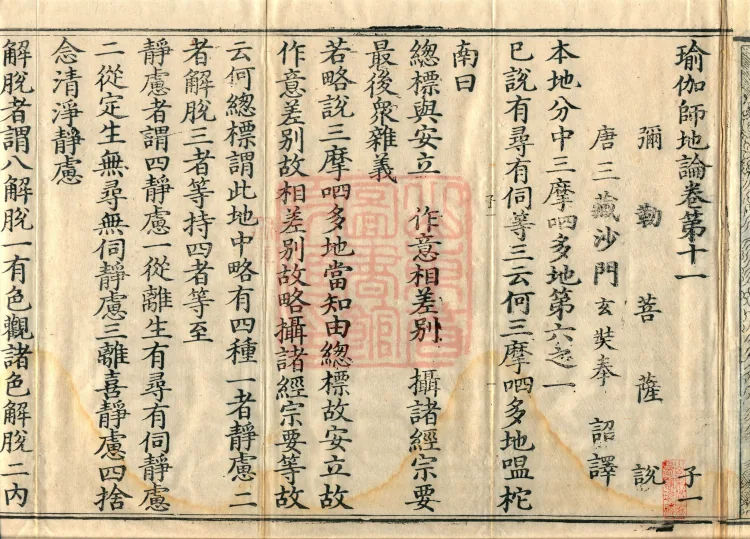 瑜伽師地論卷第十一 子一
彌勒菩薩說
唐三藏沙門玄奘奉 詔譯
本地分中三摩呬多地第六之一
已說有尋有伺等三云何三摩呬多地嗢柁
南曰
總標與安立 作意相差別 攝諸經宗要
最後衆雜義
若略說三摩呬多地當知由總標故安立故
作意差別故相差別故略攝諸經宗要等故
云何總標謂此地中略有四種一者靜慮二
者解脫三者等持四者等至
靜慮者謂四靜慮一從離生有尋有伺靜慮
二從定生無尋無伺靜慮三離喜靜慮四捨
念清淨靜慮
解脫者謂八解脫一有色觀諸色解脫二內